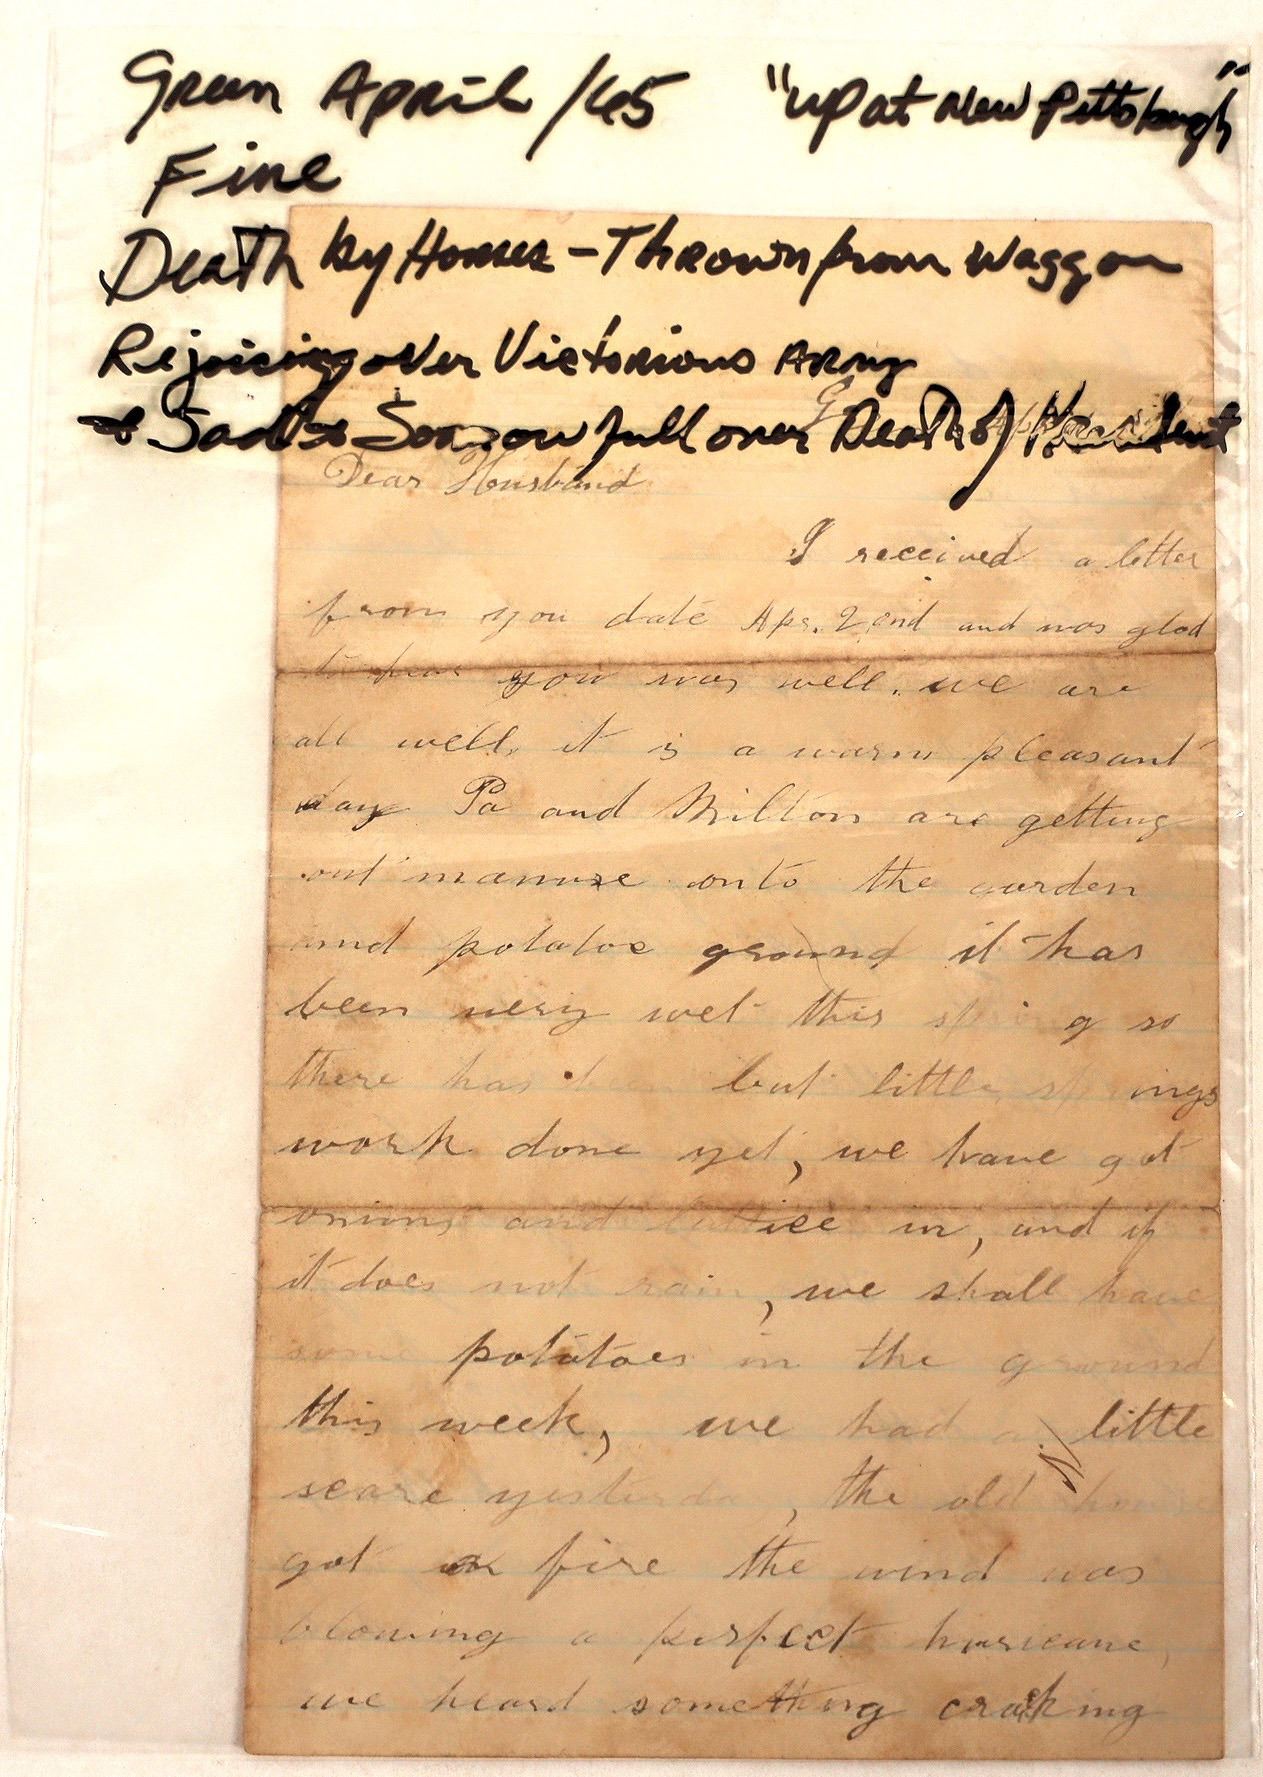 Green April /65 "up at New Pittsburgh"
Fine
Death by Horses - Thrown from Waggon
Rejoicing over Victorious Army
& Sad & Sorrowfull over Death of President
Dear Husband
I received a letter
from you date Apr. 2end and was glad
to hear you was well. we are
all well, it is a warm pleasant
day Pa and Milton are getting
out manure onto the garden
and potatoe ground it has
been very wet this spring so
there has been but little springs
work done yet, we have got
onions and lettice in, and if
it does not rain, we shall have
some potatoes in the ground
this week, we had a little
scare yesterday, the old house
got on fire the wind was
blowing a perfect hurricane,
we heard something craking